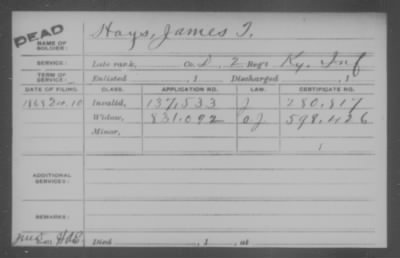 DEAD
NAME OF SOLDIER: Hays, James T.
SERVICE: Late rank, Co. D, 2 Reg't Ky. Inf
TERM OF SERVICE: Enlisted , 1 Discharged , 1
DATE OF FILING. CLASS. APPLICATION NO. LAW. CERTIFICATE NO.
1868 Dec. 10 Invalid, 137,533 J 280,817
Widow, 831,092 O.J. 598,426
Minor,
ADDITIONAL SERVICES:
REMARKS:
Died , 1 , at